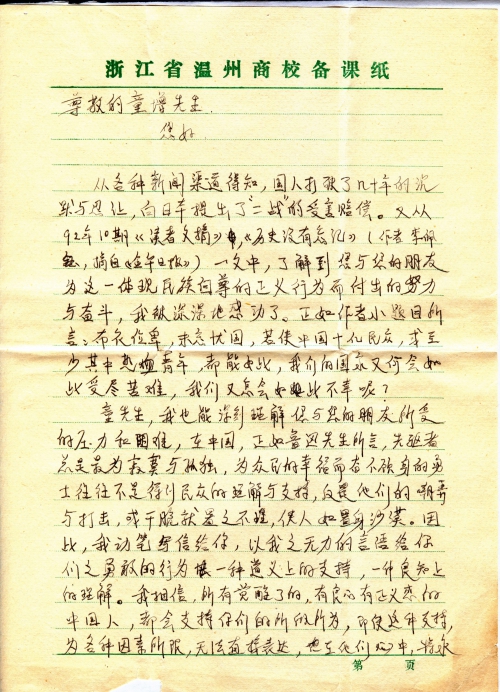 浙江省温州商校备课纸
尊敬的童增先生.
您好.
从各种新闻渠道得知，国人打破了几十年的沉
默与忍让，向日本提出了"二战"的受害赔偿。又从
92年10期《读者文摘》中，《历史没有忘记》（作者李
，摘自《金午日报》）一文中，了解到您与您的朋友
为这一体现民族自尊的正义行为而付出的努力
与奋斗，我被深深地感动了。正如作者小题目所
言：布衣位卑，未忘忧国，若使中国十亿民众，或至
少其中热血青年，都能如此，我们的国家又何会如
此受尽苦难，我们又怎会如此不幸呢？
童先生，我也能深刻理解您与您的朋友所受
的压力和困难，在中国，正如鲁迅先生所言，先驱者
总是最为寂寞与孤独，为众民的幸福而奋不顾身的勇
士往往不是得到民众的理解与支持，反是他们的嘲弄
与打击，或干脆就是之不理，使人如置身沙漠。因
此，我动笔写信给你，以我之无力的言语给你
们之勇敢的行为 一种道义上的支持，一份良知上
的理解。我相信，所有觉醒了的，有良心有正义感的
中国人，都会支持你们的所做所为，即使这种支持，
为各种因素所限，无法直接表达，也在他们心中，
第 页